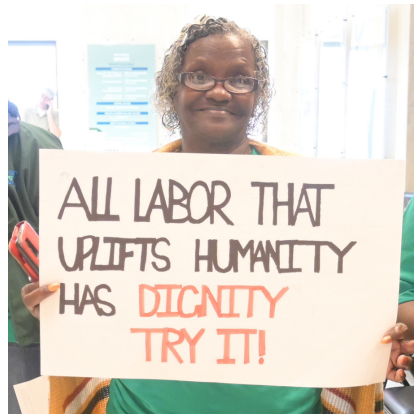 ALL LABOR THAT
UPLIFTS HUMANITY
HAS DIGNITY
TRY IT!